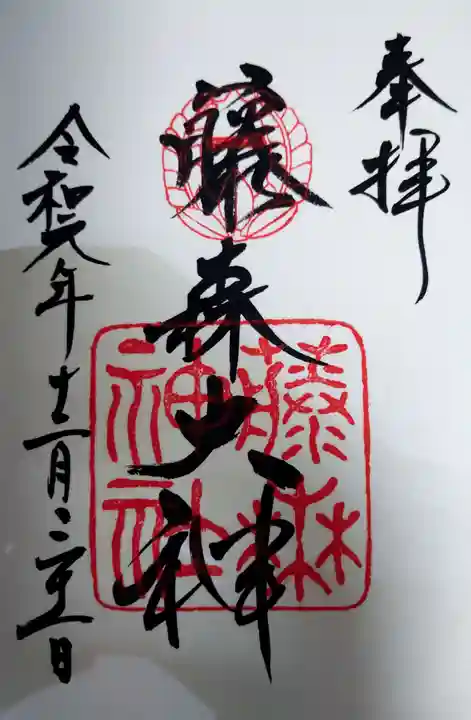 奉拝
藤森大神
藤森神社
令和元年十二月二十一日